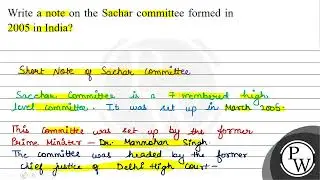 Write a note on the Sachar committee formed in
2005 in India?
Short Note of Sachar Committee
Sacchar Committee is a 7 membered high
level committee. It was set up in March 2005.
This committee was set up by the former
Prime Minister – Dr. Manmohan Singh
The committee was headed by the former
chief justice of Delhi High Court –
PW